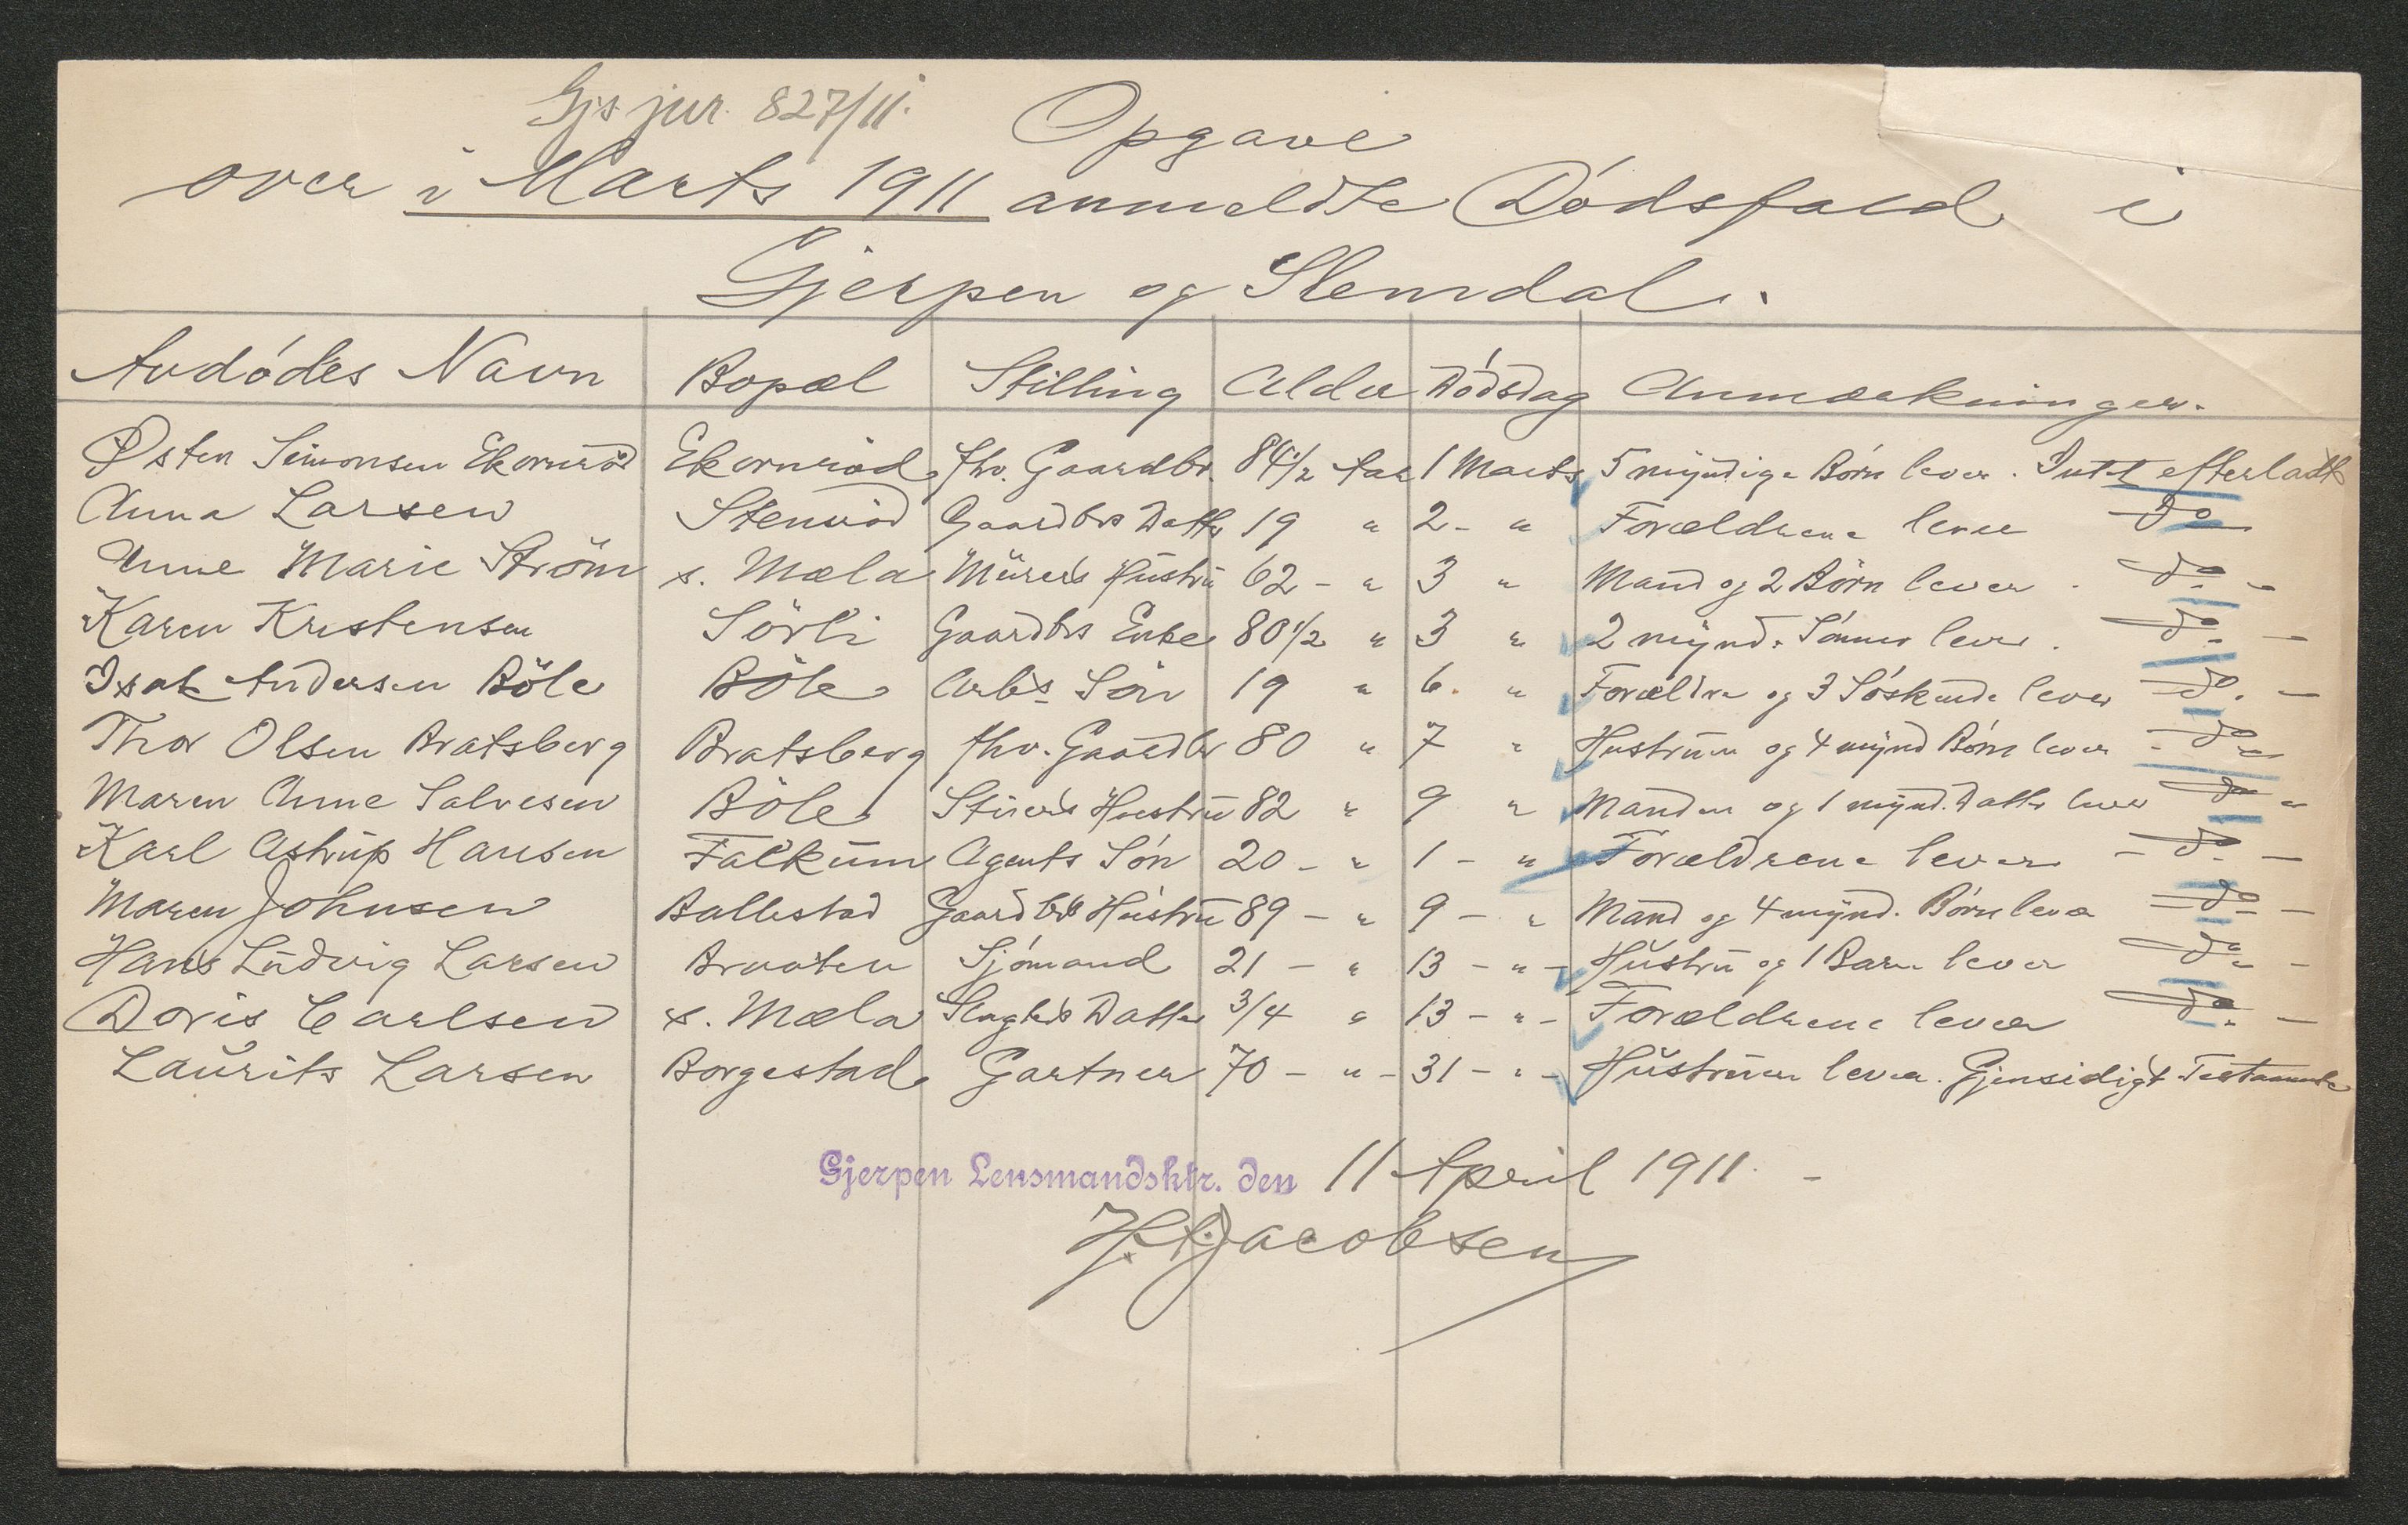 Gjs jur. 827/11.
Opgave
over i Marts 1911 anmeldte Dødsfald i
Gjerpen og Slemdal.
Avdódes Navn Bopæl Stilling Alder Dódsdag Anmærkninger.
Østen Simonsen Ekornröd Ekornröd fhv. Gaardbr. 84 1/2 Aar 1 Marts 5 myndige Börn lever. Intet efterladt
Anna Larsen Stenröd Gaardbrs Datter 19 " 2 - " Forældrene lever do
Anne Marie Ström s. Mæla Mürers Hustru 62 - " 3 " Mand og 2 Börn lever. - do -
Karen Kristensen Sörli Gaardbrs Enke 80 1/2 " 3 " 2 mynd. Sönner lever. - do. -
Isak Andersen Böle Böle Arbs Sön 19 " 6. " Forældre og 3 Söskende lever - do. -
Thor Olsen Bratsberg Bratsberg fhv. Gaardbr 80 " 7 " Hustruen og 4 mynd Börn lever - do -
Maren Anne Salvesen Böle Hustru 82 " 9 " Manden og 1 mynd. Datter lever - do -
Karl Astrup Hansen Falkum Agents Sön 20 - " 1 - " Forældrene lever - do -
Maren Johnsen Ballestad Gaardbrs Hustru 89 - " 9 - " Mand og 4 mynd. Börn lever - do -
Hans Ludvig Larsen Braaten Sjömand 21 - " 13 - " - Hustru og 1 Barn lever - do -
Doris Carlsen s. Mæla Slagters Datter 3/4 " 13 - " - Forældrene lever - do. -
Laurits Larsen Borgestad Gartner 70 - " - 31 - " - Hustruen lever. Gjensidigt Testamente
Gjerpen Lensmandsktr. den 11 April 1911. -
H. A. Jacobsen